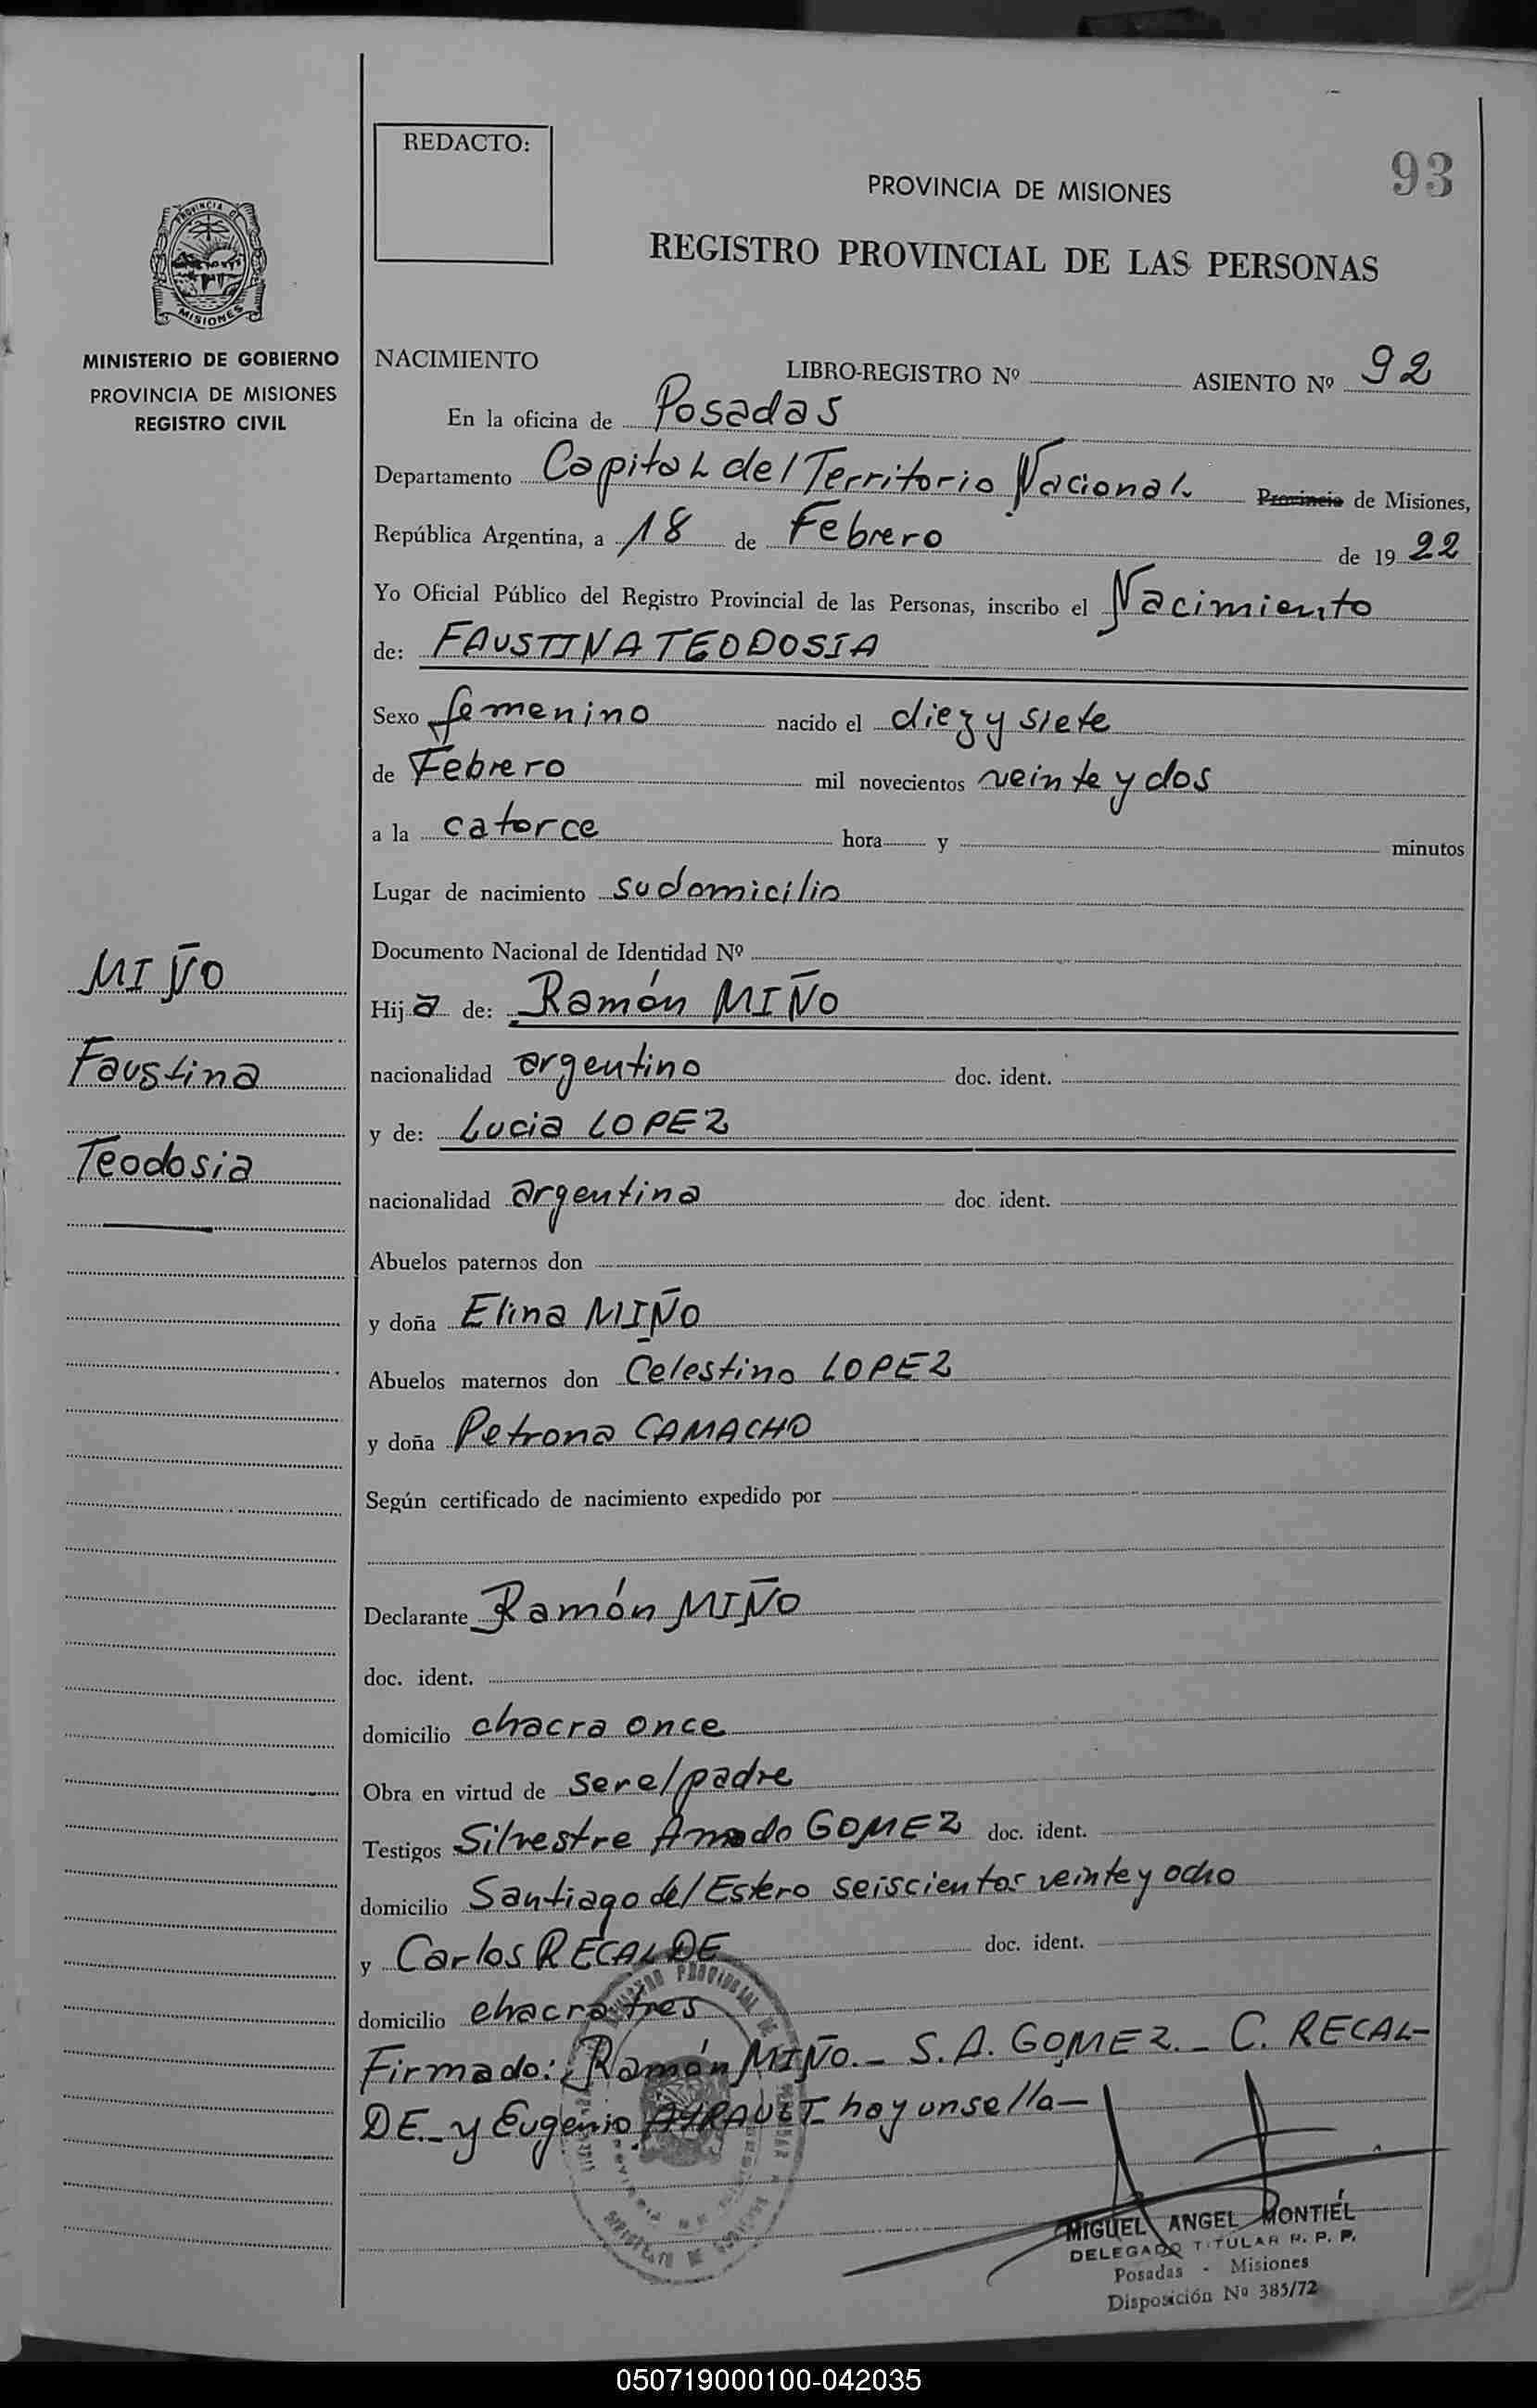 REDACTO:
93
PROVINCIA DE MISIONES
REGISTRO PROVINCIAL DE LAS PERSONAS
PROVINCIA DE
MISIONES
MINISTERIO DE GOBIERNO
PROVINCIA DE MISIONES
REGISTRO CIVIL
NACIMIENTO LIBRO-REGISTRO Nº ASIENTO Nº 92
En la oficina de Posadas
Departamento Capital del Territorio Nacional Provincia de Misiones,
República Argentina, a 18 de Febrero de 19 22
Yo Oficial Público del Registro Provincial de las Personas, inscribo el Nacimiento
de: FAUSTINA TEODOSIA
Sexo femenino nacido el diez y siete
de Febrero mil novecientos veinte y dos
a la catorce hora y minutos
Lugar de nacimiento su domicilio
Documento Nacional de Identidad Nº
MIÑO
Faustina
Teodosia
Hij a de: Ramón MIÑO
nacionalidad argentino doc. ident.
y de: Lucia LOPEZ
nacionalidad argentina doc. ident.
Abuelos paternos don
y doña Elina MIÑO
Abuelos maternos don Celestino LOPEZ
y doña Petrona CAMACHO
Según certificado de nacimiento expedido por
Declarante Ramón MIÑO
doc. ident.
domicilio chacra once
Obra en virtud de ser el padre
Testigos Silvestre Amado GOMEZ doc. ident.
domicilio Santiago del Estero seiscientos veinte y ocho
y Carlos RECALDE doc. ident.
domicilio chacra tres
Firmado: Ramón MIÑO.- S. A. GOMEZ.- C. RECAL-
DE.- y Eugenio AYRAULT hay un sello-
MIGUEL ANGEL MONTIEL
DELEGADO TITULAR R. P. P.
Posadas - Misiones
Disposición Nº 385/72
050719000100-042035